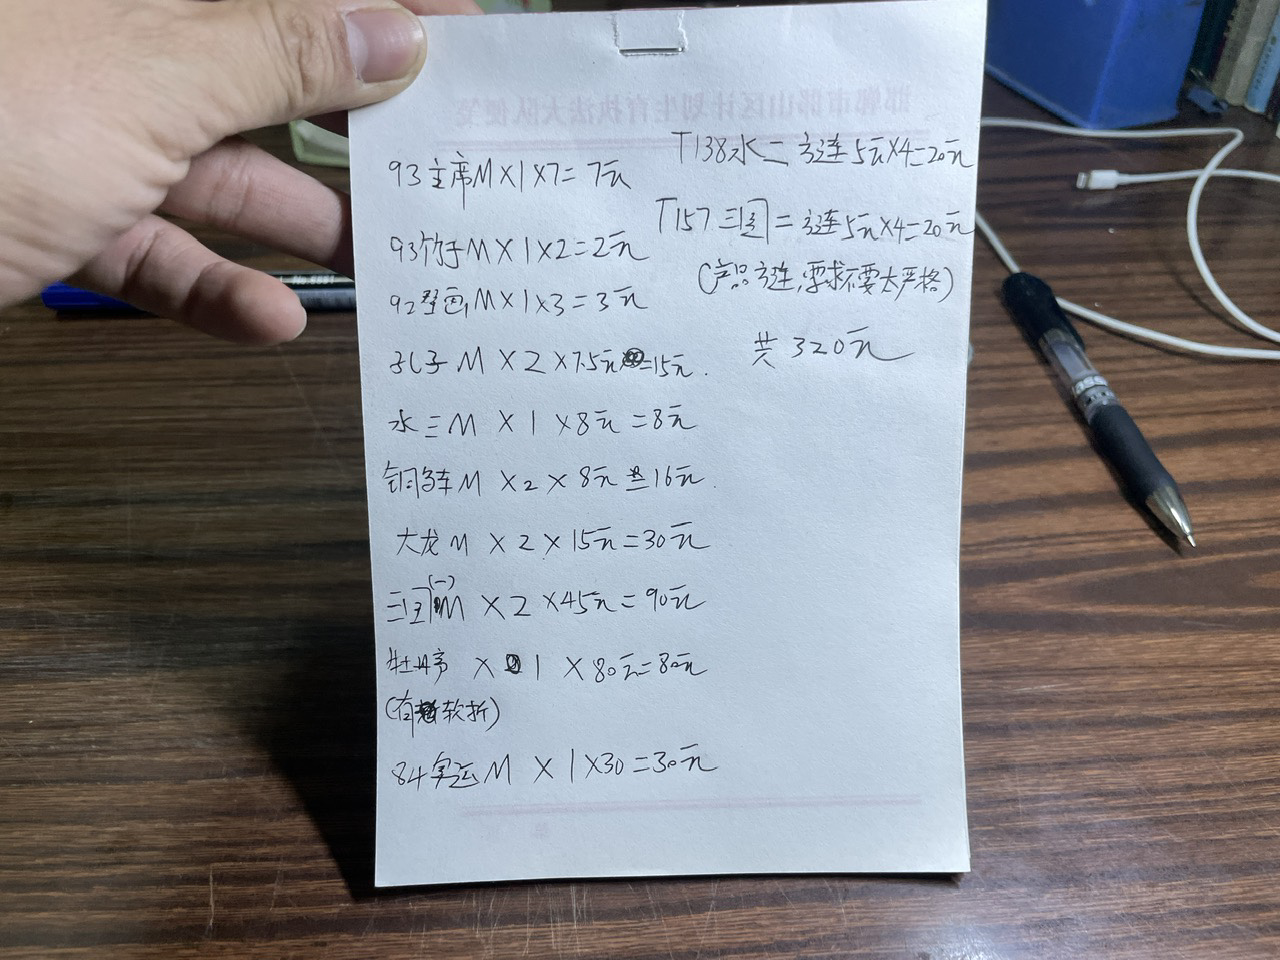 93主席M×1×7=7元
93竹子M×1×2=2元
92壁画M×1×3=3元
孔子M×2×7.5元=15元.
水三M×1×8元=8元
铜马车M×2×8元=16元.
大龙M×2×15元=30元
三国(一)M×2×45元=90元
牡丹亭×1×80元=80元
(有软折)
84奥运M×1×30=30元
T138水二方连5元×4=20元
T157三国二方连5元×4=20元
(产品方连,要求不要太严格)
共320元
邯郸市邯山区计划生育执法大队便笺
No.6881